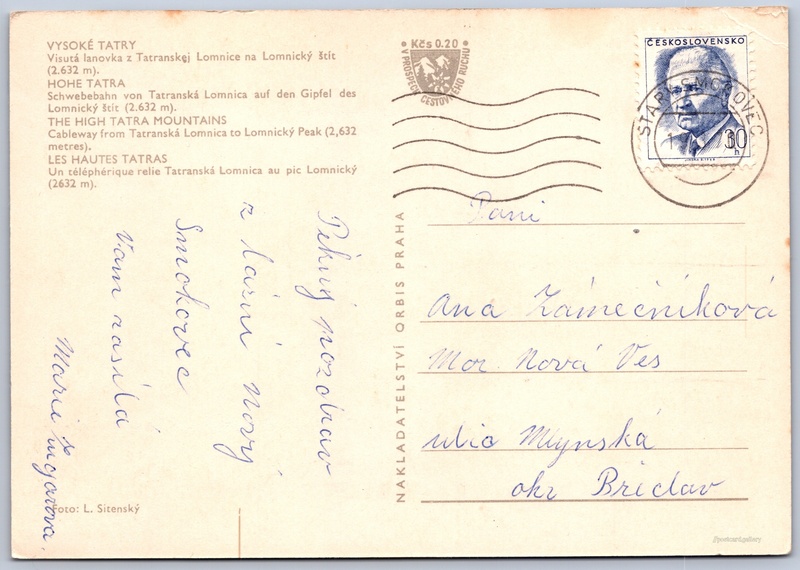 VYSOKÉ TATRY
Visutá lanovka z Tatranskej Lomnice na Lomnický štít
(2.632 m).
HOHE TATRA
Schwebebahn von Tatranská Lomnica auf den Gipfel des
Lomnický štít (2.632 m).
THE HIGH TATRA MOUNTAINS
Cableway from Tatranská Lomnica to Lomnický Peak (2,632
metres).
LES HAUTES TATRAS
Un téléphérique relie Tatranská Lomnica au pic Lomnický
(2632 m).
Kčs 0.20
V PROSPĚCH CESTOVNÍHO RUCHU
ČESKOSLOVENSKO
30
h
STARÝ SMOKOVEC
Pěkný pozdrav
z lázní Nový
Smokovec
Vam zasílá
Marie
NAKLADATELSTVÍ ORBIS PRAHA
Paní
Ana Zámečníková
Mor Nová Ves
ulic Mlynská
okr Břeclav
Foto: L. Sitenský